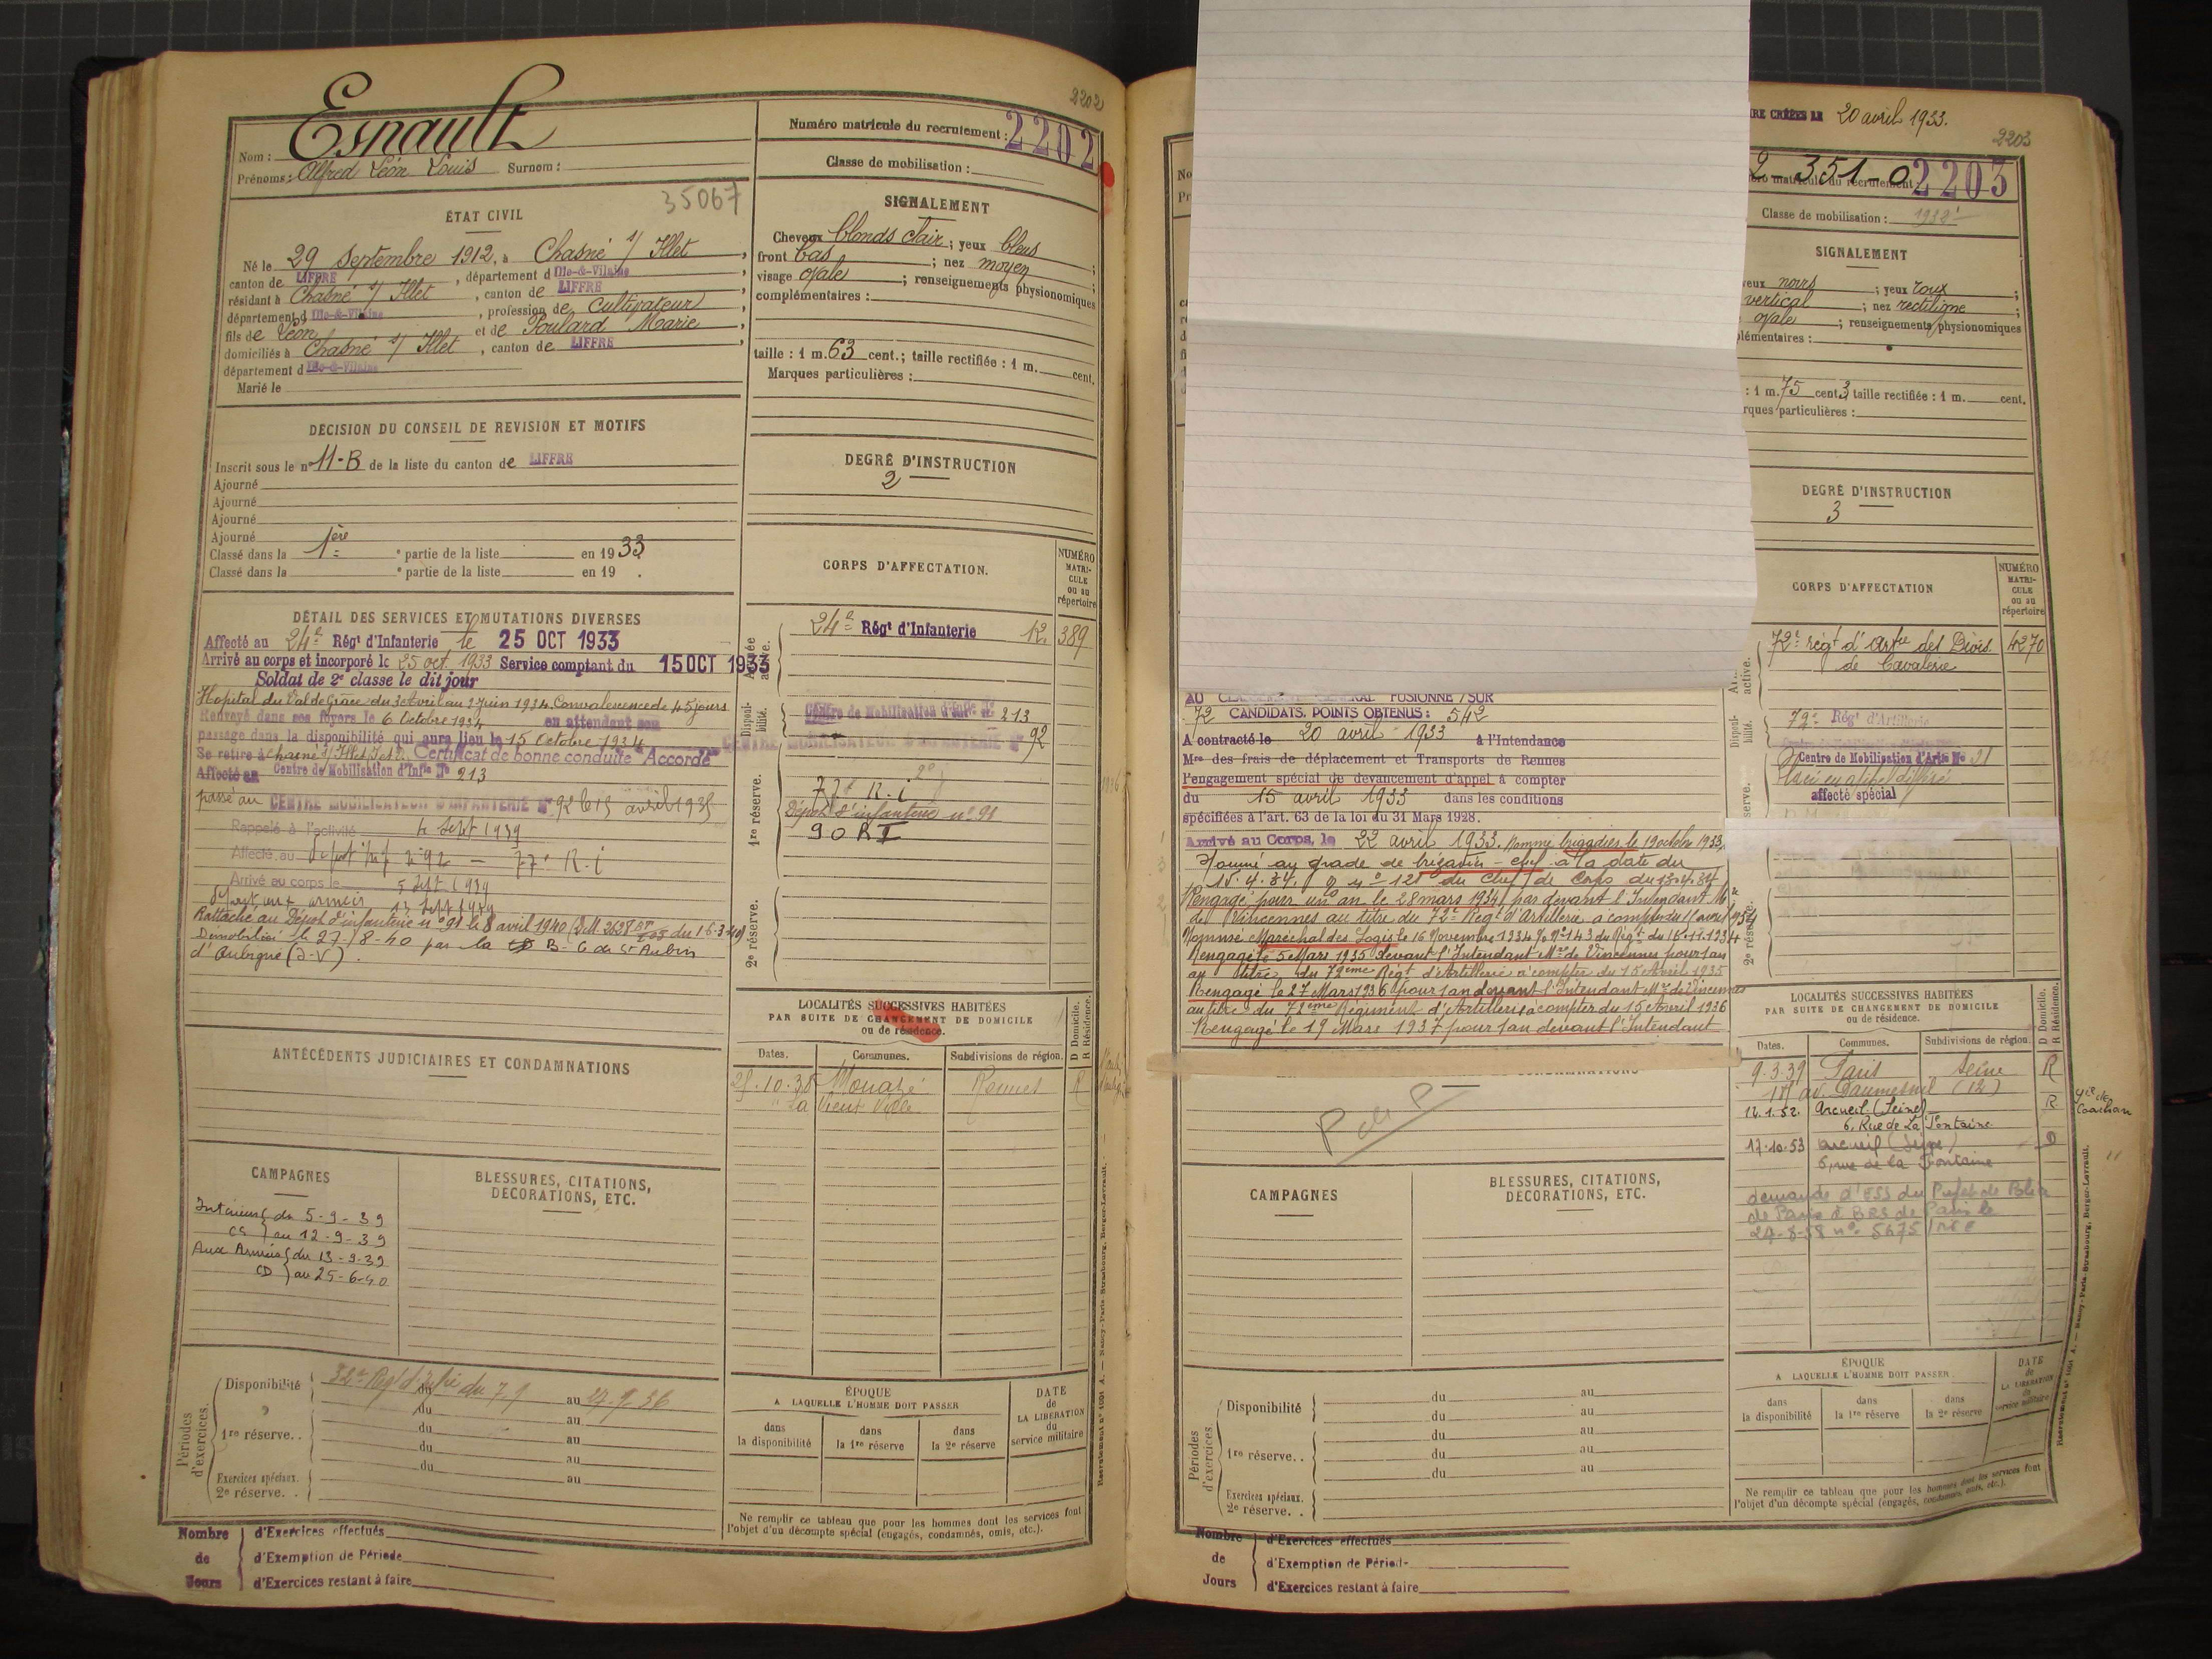 2202
Esnault
Nom :
Prénoms : Alfred Léon Louis Surnom :
35067
ÉTAT CIVIL
Né le 29 Septembre 1912, à Chasné s/ Illet,
canton de LIFFRE, département d Ille-&-Vilaine,
résidant à Chasné s/ Illet, canton de LIFFRE,
département d Ille-&-Vilaine, profession de Cultivateur,
fils de Léon et de Poulard Marie,
domiciliés à Chasné s/ Illet, canton de LIFFRE,
département d Ille-&-Vilaine
Marié le
DÉCISION DU CONSEIL DE REVISION ET MOTIFS
Inscrit sous le n° 11-B de la liste du canton de LIFFRE
Ajourné
Ajourné
Ajourné
Ajourné
Classé dans la 1ère partie de la liste en 1933
Classé dans la e partie de la liste en 19 .
DÉTAIL DES SERVICES ET MUTATIONS DIVERSES
Affecté au 24e Régt d'Infanterie le 25 OCT 1933
Arrivé au corps et incorporé le 25 oct. 1933 Service comptant du 15 OCT 1933
Soldat de 2e classe le dit jour
Hopital du Val de Grâce du 3 Avril au 9 Juin 1934. Convalescence de 45 jours
Renvoyé dans ses foyers le 6 Octobre 1934 en attendant son
passage dans la disponibilité qui aura lieu le 15 Octobre 1934
Se retire à Chasné s/ Illet Certificat de bonne conduite "Accordé"
Affecté au Centre de Mobilisation d'Infie N° 213
passé au CENTRE MOBILISATEUR D'INFANTERIE N° 92 le 15 avril 1935
Rappelé à l'activité 4 Sept 1939
Affecté au Dépot Inf n° 92 — 77e R.i
Arrivé au corps le 5 Sept 1939
Part aux armées 13 Sept 1939
Rattaché au Dépot d'infanterie n° 91 le 8 avril 1940
Démobilisé le 27-8-40 par la B-C de St Aubin
d'Aubigné (I-V).
ANTÉCÉDENTS JUDICIAIRES ET CONDAMNATIONS
CAMPAGNES
Intérieur du 5-9-39
CS au 12-9-39
Aux Armées du 13-9-39
CD au 25-6-40
BLESSURES, CITATIONS,
DÉCORATIONS, ETC.
Périodes d'exercices.
Disponibilité 32e Regt d'Infie du 7.9 au 27.9.36
du au
1re réserve. . du au
du au
du au
Exercices spéciaux.
2e réserve. .
Nombre de Jours
d'Exercices effectués
d'Exemption de Période
d'Exercices restant à faire
Numéro matricule du recrutement : 2202
Classe de mobilisation :
SIGNALEMENT
Cheveux blonds clair ; yeux bleus ;
front bas ; nez moyen ;
visage ovale ; renseignements physionomiques
complémentaires :
taille : 1 m. 63 cent.; taille rectifiée : 1 m. cent.
Marques particulières :
DEGRÉ D'INSTRUCTION
2
CORPS D'AFFECTATION.
NUMÉRO MATRICULE ou au répertoire
Armée active.
24e Régt d'Infanterie 389
Disponibilité.
Centre de Mobilisation d'Infie N° 213
CENTRE MOBILISATEUR D'INFANTERIE N° 92
1re réserve.
77e R.i
Dépot d'infanterie n° 91
90 RI
2e réserve.
LOCALITÉS SUCCESSIVES HABITÉES
PAR SUITE DE CHANGEMENT DE DOMICILE
ou de résidence.
D Domicile.
R Résidence.
Dates. Communes. Subdivisions de région.
Mouazé Rennes R
La Vieux Ville
ÉPOQUE
A LAQUELLE L'HOMME DOIT PASSER
dans la disponibilité
dans la 1re réserve
dans la 2e réserve
DATE de LA LIBÉRATION du service militaire
Ne remplir ce tableau que pour les hommes dont les services font
l'objet d'un décompte spécial (engagés, condamnés, omis, etc.).
20 avril 1933.
2203
2-351-0 2203
Classe de mobilisation :
SIGNALEMENT
noirs ; yeux roux ;
vertical ; nez rectiligne ;
ovale ; renseignements physionomiques
: 1 m. 75 cent. 3 taille rectifiée : 1 m. cent.
DEGRÉ D'INSTRUCTION
3
CORPS D'AFFECTATION
NUMÉRO MATRICULE ou au répertoire
72e régt d'Artie des Divis. 4270
de Cavalerie
72e Régt d'Artillerie
Centre de Mobilisation d'Artie N° 31
affecté spécial
72 CANDIDATS. POINTS OBTENUS : 542
A contracté le 20 avril 1933 à l'Intendance
Mre des frais de déplacement et Transports de Rennes
l'engagement spécial de devancement d'appel à compter
du 15 avril 1933 dans les conditions
spécifiées à l'art. 63 de la loi du 31 Mars 1928.
Arrivé au Corps, le 22 avril 1933. Nommé brigadier le 19 octobre 1933
Nommé au grade de brigadier-chef à la date du
15.4.34. O n° 121 du Chef de Corps du 13.4.34
Rengagé pour un an le 28 mars 1934 par devant l'Intendant Mre
de Vincennes au titre du 72e Régt d'Artillerie à compter du
Nommé Maréchal des Logis le 16 Novembre 1934
Rengagé le 5 Mars 1935 devant l'Intendant Mre de Vincennes pour 1 an
au titre du 72eme Régt d'Artillerie à compter du 15 Avril 1935
Rengagé le 27 Mars 1936 pour 1 an devant l'Intendant Mre de Vincennes
au titre du 72eme Régiment d'Artillerie à compter du 15 Avril 1936
Rengagé le 19 Mars 1937 pour 1 an devant l'Intendant
CAMPAGNES
BLESSURES, CITATIONS,
DÉCORATIONS, ETC.
2e réserve.
LOCALITÉS SUCCESSIVES HABITÉES
PAR SUITE DE CHANGEMENT DE DOMICILE
ou de résidence.
D Domicile.
R Résidence.
Dates. Communes. Subdivisions de région.
9.3.39 Paris Seine R
av. Daumesnil (12)
14.1.52. Arcueil (Seine) R
6, Rue de La Fontaine
17.10.53 Arcueil (Seine) D
6, rue de la Fontaine
Périodes d'exercices.
Disponibilité du au
du au
1re réserve. . du au
du au
du au
Exercices spéciaux.
2e réserve. .
ÉPOQUE
A LAQUELLE L'HOMME DOIT PASSER
dans la disponibilité
dans la 1re réserve
dans la 2e réserve
DATE de LA LIBÉRATION du service militaire
Ne remplir ce tableau que pour les hommes dont les services font
l'objet d'un décompte spécial (engagés, condamnés, omis, etc.).
Nombre de Jours
d'Exercices effectués
d'Exemption de Périod-
d'Exercices restant à faire